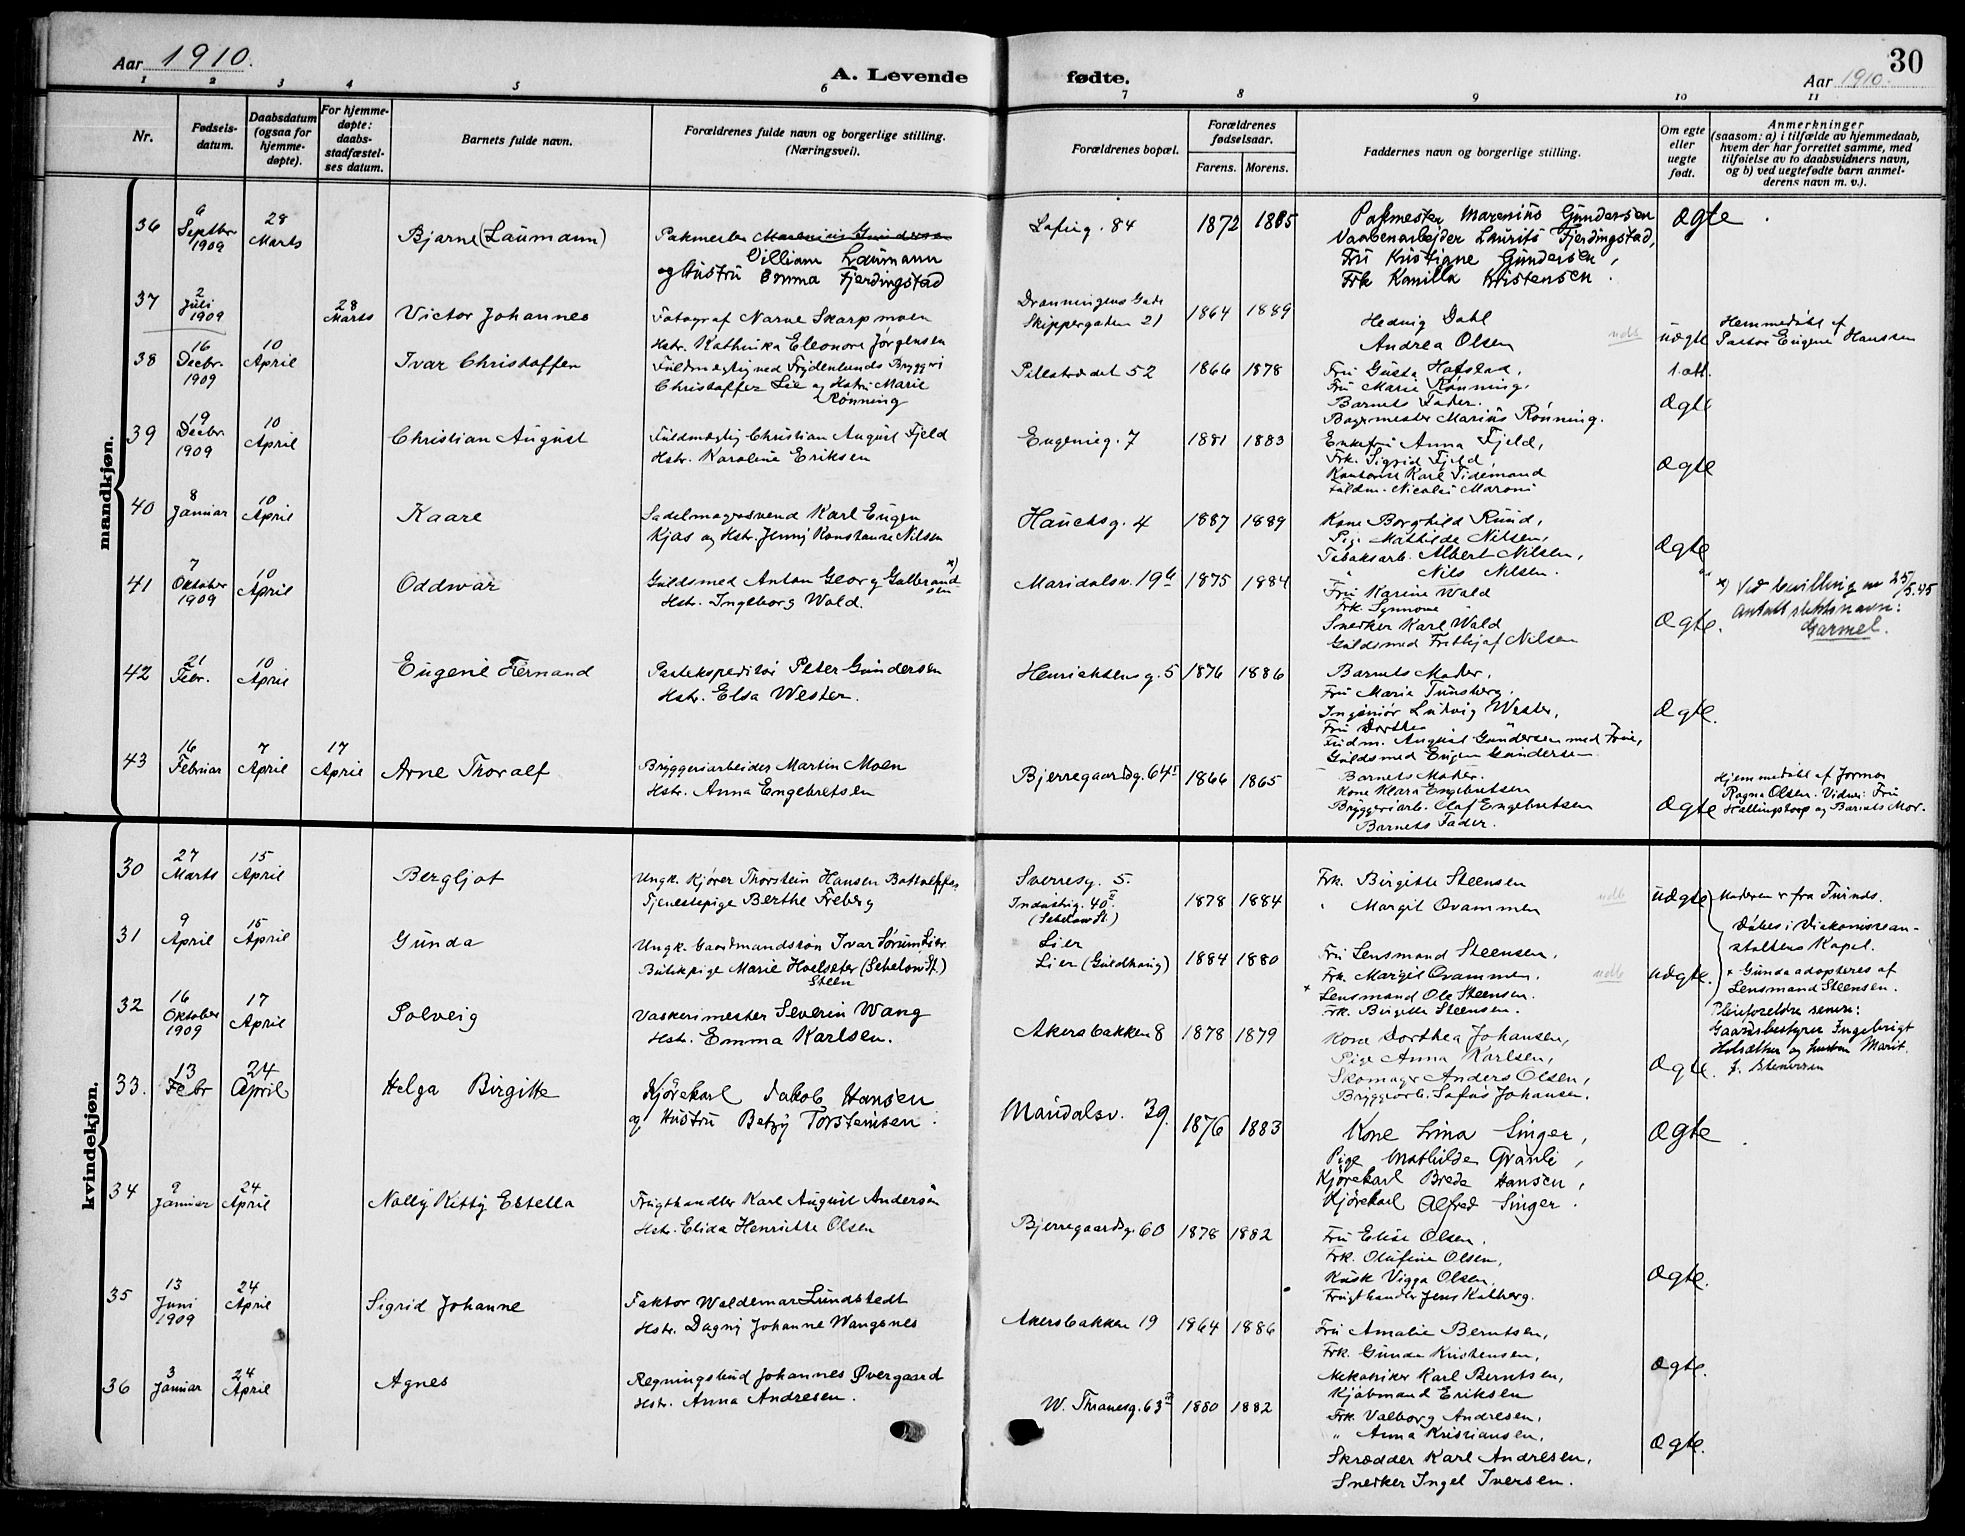 Aar 1910.
A. Levende fødte.
Aar 1910.
30
1 2 3 4 5 6 7 8 9 10 11
Nr.
Fødsels-
datum.
Daabsdatum
(ogsaa for
hjemme-
døpte).
For hjemme-
døpte:
daabs-
stadfæstel-
ses datum.
Barnets fulde navn.
Forældrenes fulde navn og borgerlige stilling.
(Næringsvei).
Forældrenes bopæl.
Forældrenes
fødselsaar.
Farens. Morens.
Faddernes navn og borgerlige stilling.
Om egte
eller
uegte
født.
Anmerkninger
(saasom: a) i tilfælde av hjemmedaab,
hvem der har forrettet samme, med
tilføielse av to daabsvidners navn,
og b) ved uegtefødte barn anmel-
derens navn m. v.).
mandkjøn.
36
6
Septbr
1909
28
Marts
Bjarne (Laumann)
Pakmester Marenius Gundersen
William Laumann
og Hustru Emma Fjerdingstad
Lofteg. 84
1872 1885
Pakmester Marenius Gundersen
Vaabenarbejder Laurits Fjerdingstad,
Fru Kristiane Gundersen,
Frk Kamilla Kristensen.
Ægte
37
2
Juli
1909
28
Marts
Victor Johannes
Fotograf Narve Skarpmoen
Hstr. Kathinka Eleonore Jørgensen
Dronningens Gade
Skippergaten 21
1864 1889
Hedvig Dahl
Andrea Olsen
udb
uægte
Hemmedøbt af
Pastor Eugene Hanssen
38
16
Decbr.
1909
10
April
Ivar Christoffer
Fuldmægtig ved Frydenlunds Bryggeri
Christoffer Lie og Hstru Marie
Rønning
Pilestrædet 52
1866 1878
Fru Gusta Hofstad,
Fru Marie Rønning,
Barnets Fader.
Bagermester Marius Rønning.
1. att.
Ægte
39
19
Decbr.
1909
10
April
Christian August
Fuldmægtig Christian August Fjeld
Hstr. Karoline Eriksen
Eugenieg. 7
1881 1883
Enkefru Anna Fjeld,
Frk. Sigrid Fjeld
Kontorist Karl Tidemand
Fuldm. Nicolai Maroni
Ægte
40
8
Januar
10
April
Kaare
Sadelmagersvend Karl Eugen
Kjøs og Hstr. Jenny Konstanse Nilsen
Hauchsg. 4
1887 1889
Kone Borghild Ruud,
Pig. Mathilde Nilsen,
Tobaksarb. Albert Nilsen,
" Nils Nilsen.
Ægte
41
7
Oktober
1909
10
April
Oddwar
Guldsmed Anton Georg Gulbrand-
sen x)
Hstr. Ingeborg Wold.
Maridalsv. 19 b
1875 1884
Fru Karine Wold
Frk. Synnøve
Snedker Karl Wold
Guldsmed Frithjof Nilsen
Ægte.
x) Ved bevilling av 25/5.45
antatt slektsnavn:
Garmel.
42
21
Febr.
10
April
Eugene Fernand
Postekspeditør Peter Gundersen
Hstr. Elsa Wester.
Henrichsensg. 5
1876 1886
Barnets Moder,
Fru Marie Tunsberg.
Ingeniør Ludvig Wester,
Fru Dorthea
Fuldm. August Gundersen med Frue,
Guldsmed Eugen Gundersen
Ægte.
43
16
Februar
7
April
17
April
Arne Thoralf
Bryggeriarbeider Martin Moen
Hstr. Anna Engebretsen
Bjerregaardsg. 64
1866 1865
Barnets Moder.
Kone Klara Engebretsen
Bryggeriarb. Olaf Engebretsen
Barnets Fader.
Ægte
Hjemmedøbt af Jormor
Ragna Olsen. Vidner: Fru
Hallingstorp og Barnets Mor.
kvindekjøn.
30
27
Marts
15
April
Bergljot
Ungk. Kjører Thorstein Hansen
Tjenestepige Berthe Freberg
Sverresg. 5.
Industrig. 40 II
(Schelows St)
1878 1884
Frk. Birgitte Steensen
" Margit Ovammen
udb
uægte
Moderen er fra Furnds.
31
9
April
15
April
Gunda
Ungk. Gaardmandssøn Ivar Sørum Lier
Butikpige Marie Hoelseter (Schelows St.)
Steen
Lier
Lier (Guldhaug)
1884 1880
Fru Lensmand Steensen,
Frk. Margit Ovammen.
x Lensmand Ole Steensen.
Frk. Birgitte Steensen.
udb
uægte.
Døbes i Diakonissean-
staltens Kapel.
x Gunda adopteres af
Lensmand Steensen.
Pleiforeldre senere:
Gaardsbestyrer Ingebrigt
Holsæther og hustru Marit
f. Stenersen
32
16
Oktober
1909
17
April
Solveig
Vaskerimester Severin Wang
Hstr. Emma Karlsen.
Akersbakken 8
1878 1879
Kone Dorthea Johansen,
Pige Anna Karlsen,
Skomager Anders Olsen,
Bryggeriarb. Sofus Johansen.
Ægte.
33.
13
Febr
24
April
Helga Birgitte
Kjørekarl Jakob Hansen
og Hustru Betzy Torsteinsen.
Maridalsv. 39.
1876 1883
Kone Trina Singer,
Pige Mathilde Granli,
Kjørekarl Brede Hansen,
Kjørekarl Alfred Singer.
Ægte
34
9
Januar
24
April
Nally Kitty Estella
Frugthandler Karl August Andersen
Hstr. Elida Henriette Olsen
Bjerregaardsg. 60
1878 1882
Fru Elise Olsen.
Frk. Olufine Olsen,
Kusk Vigga Olsen,
Frugthandler Jens Kalberg.
Ægte.
35
13
Juni
1909
24
April
Sigrid Johanne
Faktor Waldemar Lundstedt
Hstr. Dagny Johanne Wangsnes
Akersbakken 19
1864 1886
Fru Amalie Berntsen,
Frk. Gunda Kristensen,
Mekaniker Karl Berntsen,
Kjøbmand Eriksen
Ægte.
36
3
Januar
24
April
Agnes
Regningsbud Johannes Øvergaard
Hstr. Anna Andresen.
W. Thranesg. 63
1880 1882
Frk. Valborg Andresen,
" Anna Kristiansen,
Skrædder Karl Andresen,
Snedker Ingel Iversen.
Ægte.